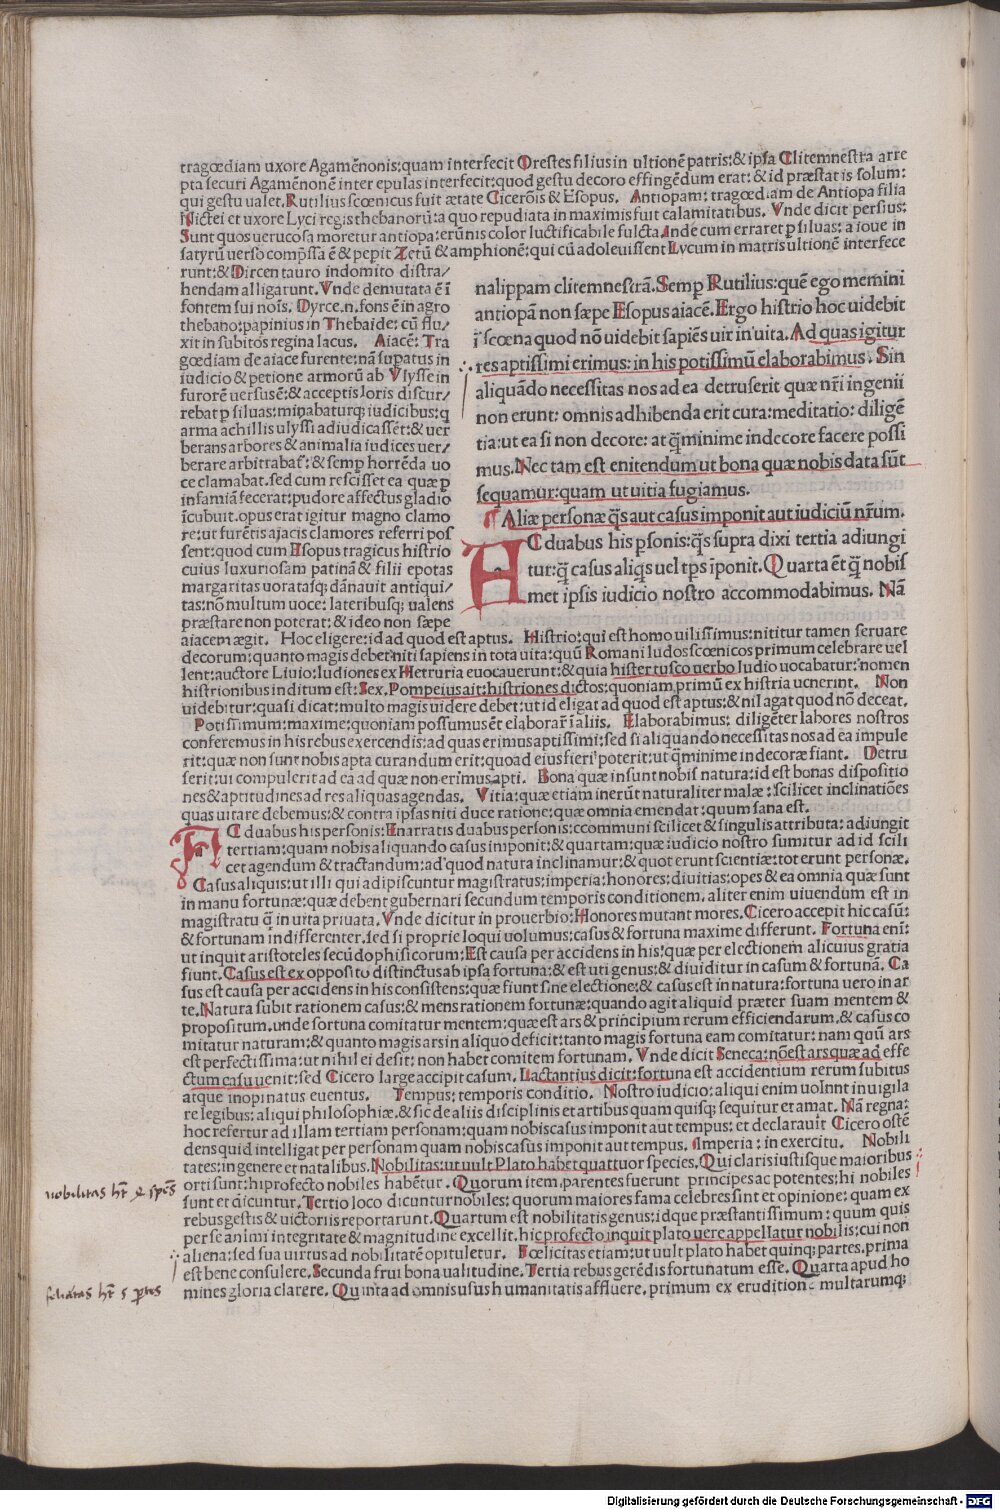 tragœdiam uxore Agamēnonis:quam interfecit Orestes filius in ultionē patris:& ipsa Clitemnestra arre
pta securi Agamēnonē inter epulas interfecit:quod gestu decoro effingēdum erat:& id præstat is solum:
qui gestu ualet. Rutilius scœnicus fuit ætate Cicerōis & Esopus. Antiopam: tragœdiam de Antiopa filia
Nictei et uxore Lyci regis thebanorū:a quo repudiata in maximis fuit calamitatibus. Vnde dicit persius:
Sunt quos uerucosa moretur antiopa:erūnis color luctificabile fulcta. Inde cum erraret p siluas:a ioue in
satyrū uerso compssa ē & pepit Zetū & amphionē:qui cū adoleuissent Lycum in matris ultionē interfece
runt:& Dircen tauro indomito distra/
hendam alligarunt. Vnde demutata ē ī
fontem sui noīs. Dyrce.n.fons ē in agro
thebano:papinius in Thebaide: cū flu/
xit in subitos regina lacus. Aiacē: Tra
gœdiam de aiace furente:nā supatus in
iudicio & petione armorū ab Vlysse in
furorē uersus ē:& acceptis loris discur/
rebat p siluas:minabaturq; iudicibus:q
arma achillis ulyssi adiudicassēt:& uer
berans arbores & animalia iudices uer/
berare arbitrabat:& semp horrēda uo
ce clamabat.sed cum rescisset ea quæ p
infamiā fecerat:pudore affectus gladio
īcubuit.opus erat igitur magno clamo
re:ut furētis ajacis clamores referri pos
sent:quod cum Esopus tragicus histrio
cuius luxuriosam patinā & filii epotas
margaritas uoratasq; dānauit antiqui/
tas:nō multum uoce: lateribusq; ualens
præstare non poterat:& ideo non sæpe
nalippam clitemnestrā. Semp Rutilius:quē ego memini
antiopā non sæpe Esopus aiacē. Ergo histrio hoc uidebit
ī scœna quod nō uidebit sapiēs uir in uita. Ad quas igitur
res aptissimi erimus: in his potissimū elaborabimus. Sin
aliquādo necessitas nos ad ea detruserit quæ nri ingenii
non erunt: omnis adhibenda erit cura: meditatio: diligē
tia:ut ea si non decore: at q̄minime indecore facere possi
mus. Nec tam est enitendum ut bona quæ nobis data sūt
sequamur:quam ut uitia fugiamus.
Aliæ personæ q̄s aut casus imponit aut iudiciū nrum.
AC duabus his psonis: q̄s supra dixi tertia adiungi
tur:q̄ casus aliq̄s uel tps īponit. Quarta ēt q̄ nobis
met ipsis iudicio nostro accommodabimus. Nā
aiacem ægit. Hoc eligere:id ad quod est aptus. Histrio: qui est homo uilissimus:nititur tamen seruare
decorum:quanto magis debet niti sapiens in tota uita:quū Romani ludos scœnicos primum celebrare uel
lent:auctore Liuio:ludiones ex Hetruria euocauerunt:& quia hister tusco uerbo ludio uocabatur:nomen
histrionibus inditum est: Sex. Pompeius ait:histriones dictos:quoniam primū ex histria uenerint. Non
uidebitur:quasi dicat:multo magis uidere debet:ut id eligat ad quod est aptus:& nil agat quod nō deceat.
Potissimum:maxime:quoniam possumus ēt elaborar in aliis. Elaborabimus: diligēter labores nostros
conferemus in his rebus exercendis:ad quas erimus aptissimi:sed si aliquando necessitas nos ad ea impule
rit:quæ non sunt nobis apta curandum erit:quoad eius fieri poterit:ut q̄minime indecoræ fiant. Detru
serit:ui compulerit ad ea ad quæ non erimus apti. Bona quæ insunt nobis natura:id est bonas dispositio
nes & aptitudines ad res aliquas agendas. Vitia:quæ etiam inerūt naturaliter malæ: scilicet inclinatiōes
quas uitare debemus:& contra ipsas niti duce ratione:quæ omnia emendat:quum sana est.
AC duabus his personis: Enarratis duabus personis:ccommuni scilicet & singulis attributa: adiungit
tertiam:quam nobis aliquando casus imponit:& quartam:quæ iudicio nostro sumitur ad id scili
cet agendum & tractandum:ad quod natura inclinamur:& quot erunt scientiæ:tot erunt personæ.
Casus aliquis:ut illi qui adipiscuntur magistratus:imperia:honores:diuitias:opes & ea omnia quæ sunt
in manu fortunæ:quæ debent gubernari secundum temporis conditionem.aliter enim uiuendum est in
magistratu q̄ in uita priuata. Vnde dicitur in prouerbio: Honores mutant mores. Cicero accepit hic casū:
& fortunam indifferenter.sed si proprie loqui uolumus:casus & fortuna maxime differunt. Fortuna enī:
ut inquit aristoteles secūdo phisicorum: Est causa per accidens in his:quæ per electionem alicuius gratia
fiunt. Casus est ex opposito distinctus ab ipsa fortuna:& est uti genus:& diuiditur in casum & fortunā. Ca
sus est causa per accidens in his consistens:quæ fiunt sine electione:& casus est in natura:fortuna uero in ar
te. Natura subit rationem casus:& mens rationem fortunæ:quando agit aliquid præter suam mentem &
propositum.unde fortuna comitatur mentem:quæ est ars & principium rerum efficiendarum.& casus co
mitatur naturam:& quanto magis ars in aliquo deficit:tanto magis fortuna eam comitatur: nam quū ars
est perfectissima:ut nihil ei desit: non habet comitem fortunam. Vnde dicit Seneca:nō est ars quæ ad effe
ctum casu uenit:sed Cicero large accipit casum. Lactantius dicit:fortuna est accidentium rerum subitus
atque inopinatus euentus. Tempus: temporis conditio. Nostro iudicio:aliqui enim uolnnt inuigila
re legibus: aliqui philosophiæ.& sic de aliis disciplinis et artibus quam quisq; sequitur et amat. Nā regna:
hoc refertur ad illam tertiam personam:quam nobis casus imponit aut tempus: et declarauit Cicero ostē
dens quid intelligat per personam quam nobis casus imponit aut tempus. Imperia: in exercitu. Nobili
tates:in genere et natalibus. Nobilitas:ut uult Plato habet quattuor species. Qui claris iustisque maioribus
orti sunt:hi profecto nobiles habētur. Quorum item parentes fuerunt principes ac potentes:hi nobiles
sunt et dicuntur. Tertio loco dicuntur nobiles: quorum maiores fama celebres sint et opinione: quam ex
rebus gestis & uictoriis reportarunt. Quartum est nobilitatis genus:idque præstantissimum: quum quis
per se animi integritate & magnitudine excellit.hic profecto inquit plato uere appellatur nobilis:cui non
aliena:sed sua uirtus ad nobilitatē opituletur. Fœlicitas etiam:ut uult plato habet quinq; partes.prima
est bene consulere. Secunda frui bona ualitudine. Tertia rebus gerēdis fortunatum esse. Quarta apud ho
mines gloria clarere. Quinta ad omnis usus humanitatis affluere. primum ex eruditione multarumq;
nobilitas ht 4 spēs
felicitas ht 5 ptes
Digitalisierung gefördert durch die Deutsche Forschungsgemeinschaft - DFG